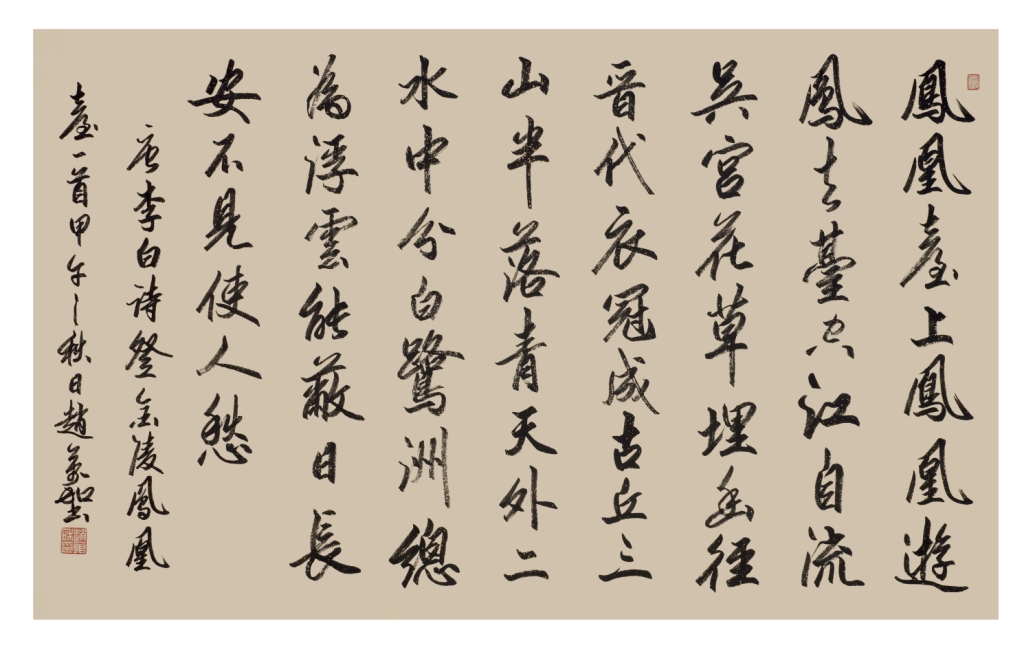 鳳凰臺上鳳凰遊
鳳去臺空江自流
吳宮花草埋幽徑
晋代衣冠成古丘三
山半落青天外二
水中分白鷺洲總
為浮雲能蔽日長
安不見使人愁
唐李白诗登金陵鳳凰
臺一首甲午之秋日趙